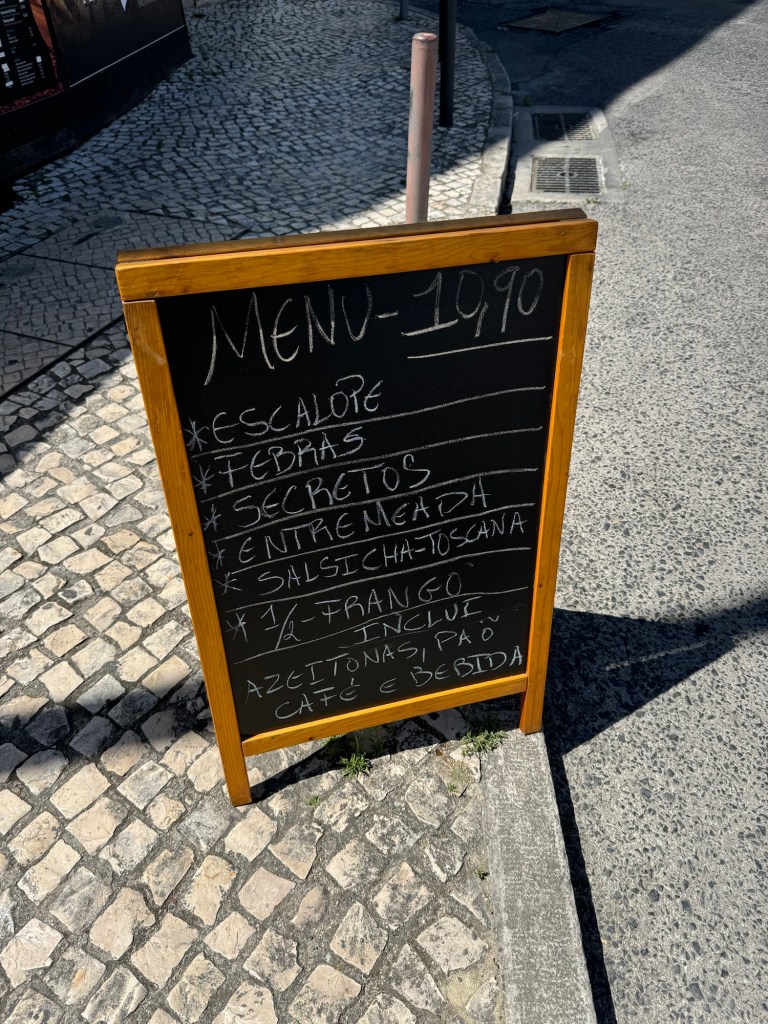 MENU - 10,90
* ESCALOPE
* FEBRAS
* SECRETOS
* ENTREMEADA
* SALSICHA-TOSCANA
* 1/2 - FRANGO
INCLUI
AZEITONAS, PAÕ
CAFÉ E BEBIDA